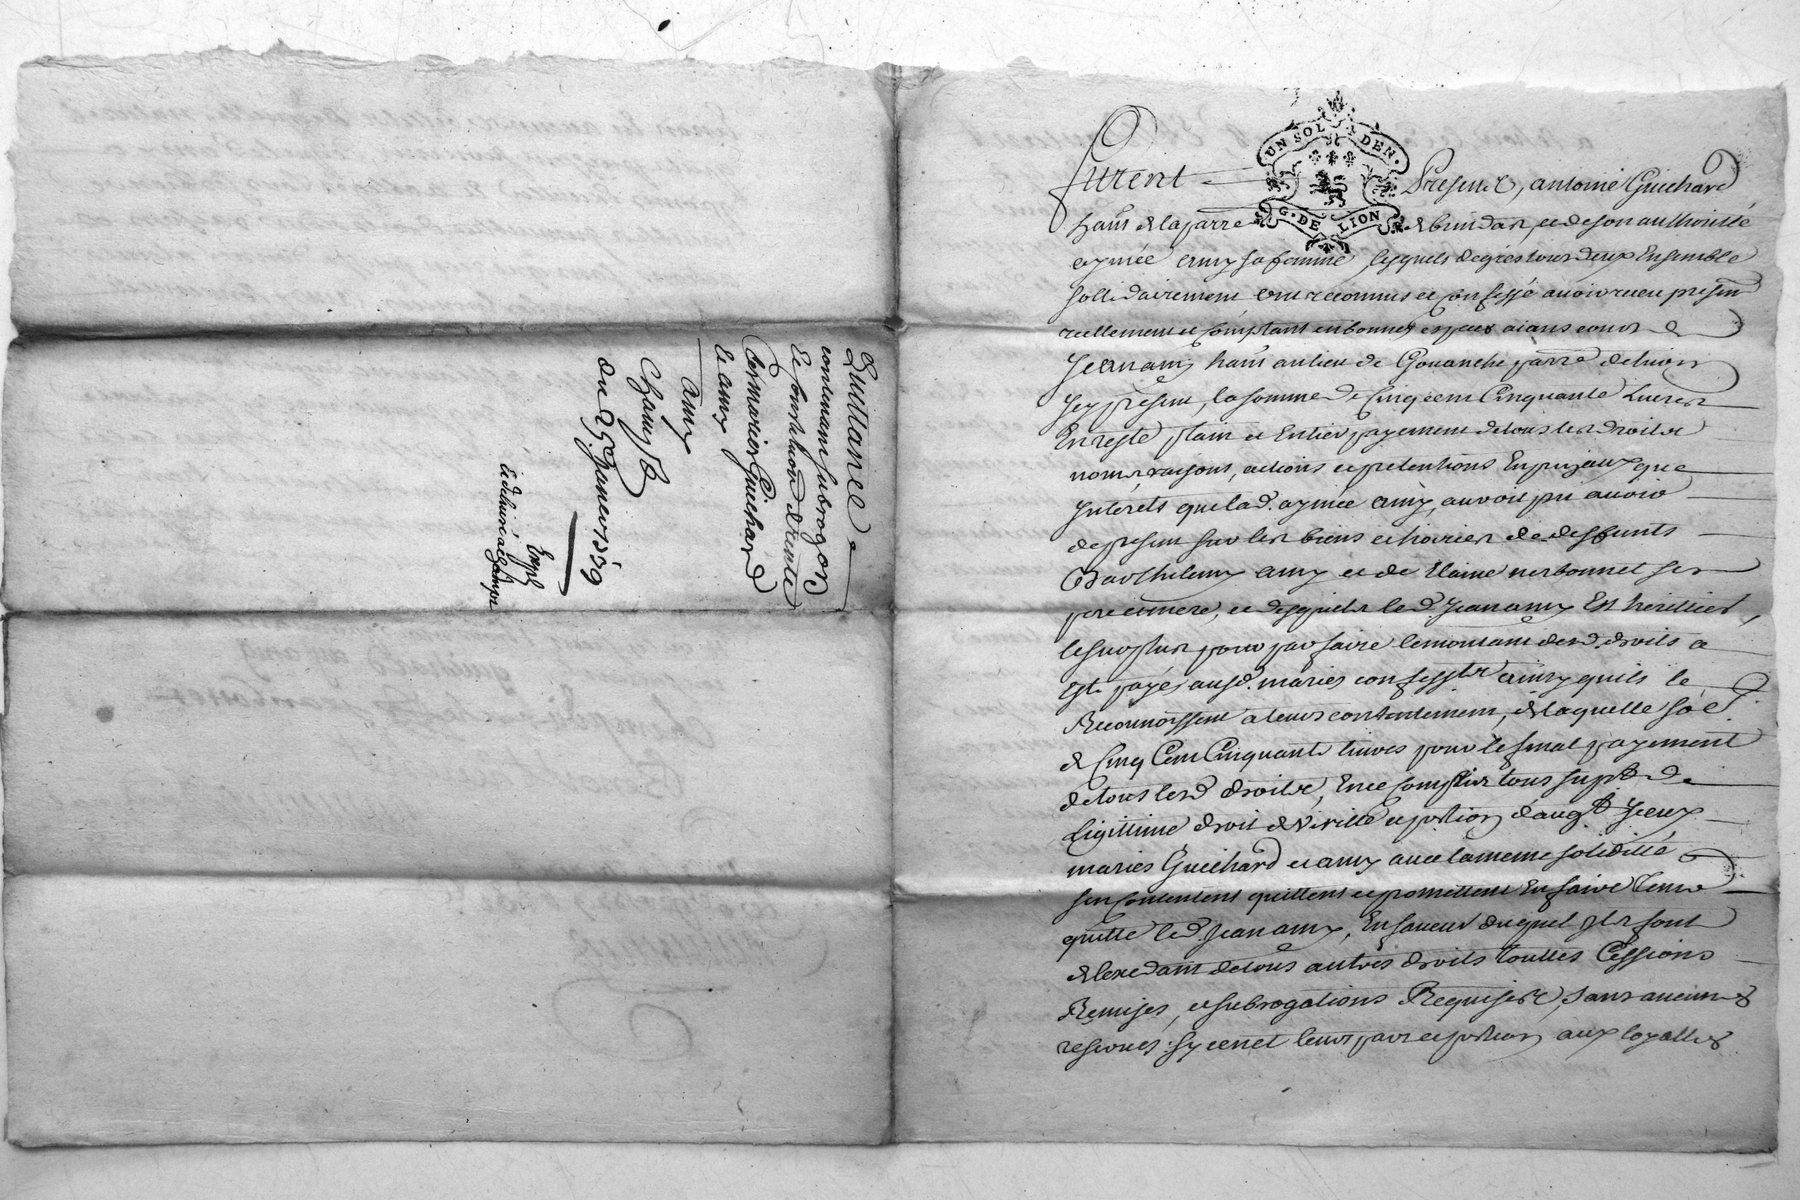 Quittance
contenant subrogaōn
Et constituōn de rente
Les mariés Guichard
et amy
a
amy
du 25e Janvier 1759
Expé
UN SOL DEN.
G. DE LION
furent Presents, antoine Guichard
hant de la parre de bussas, et de son authoritté
aymée amy sa femme, lesquels de gré tous deux Ensemble
sollidairement ont reconnus et confessé avoir receu presentt
reellement et comptant en bonnes especes aiant cours de
Jean amy hant au lieu de Gouanche parre de
Icy present, la somme de Cinq cent Cinquante Livres
En reste plain et Entier payement de tous les droits
noms, raisons, actions et pretentions En principaux que
Interets que lad. aymée amy, auroit pu avoir
de present sur les biens et hoiries de deffunts
Barthelemy amy et de Claime nesbonnet ses
pere et mere, et desquels led. Jean amy Est herittier,
le surplus pour parfaire le montant desd. droits a
Esté payé ausd. mariés confessts ainsy quils le
Reconnoissent a leurs contentement, de laquelle soē.
de Cinq Cent Cinquante livres pour le final payement
de tous lesd droits, En ce compris tous suplt de
Ligittime droit de virille et portion d'augt Iceux
mariés Guichard et amy avec la meme soliditté
sen contentent quittent et promettent En faire tenir
quitte led. Jean amy, En faveur duquel Ils font
de lexcedant de tous autres droits touttes Cessions
Remises, et subrogations Requises, sans aucunes
reserves, sy ce n'est leurs part et portion aux loyalles